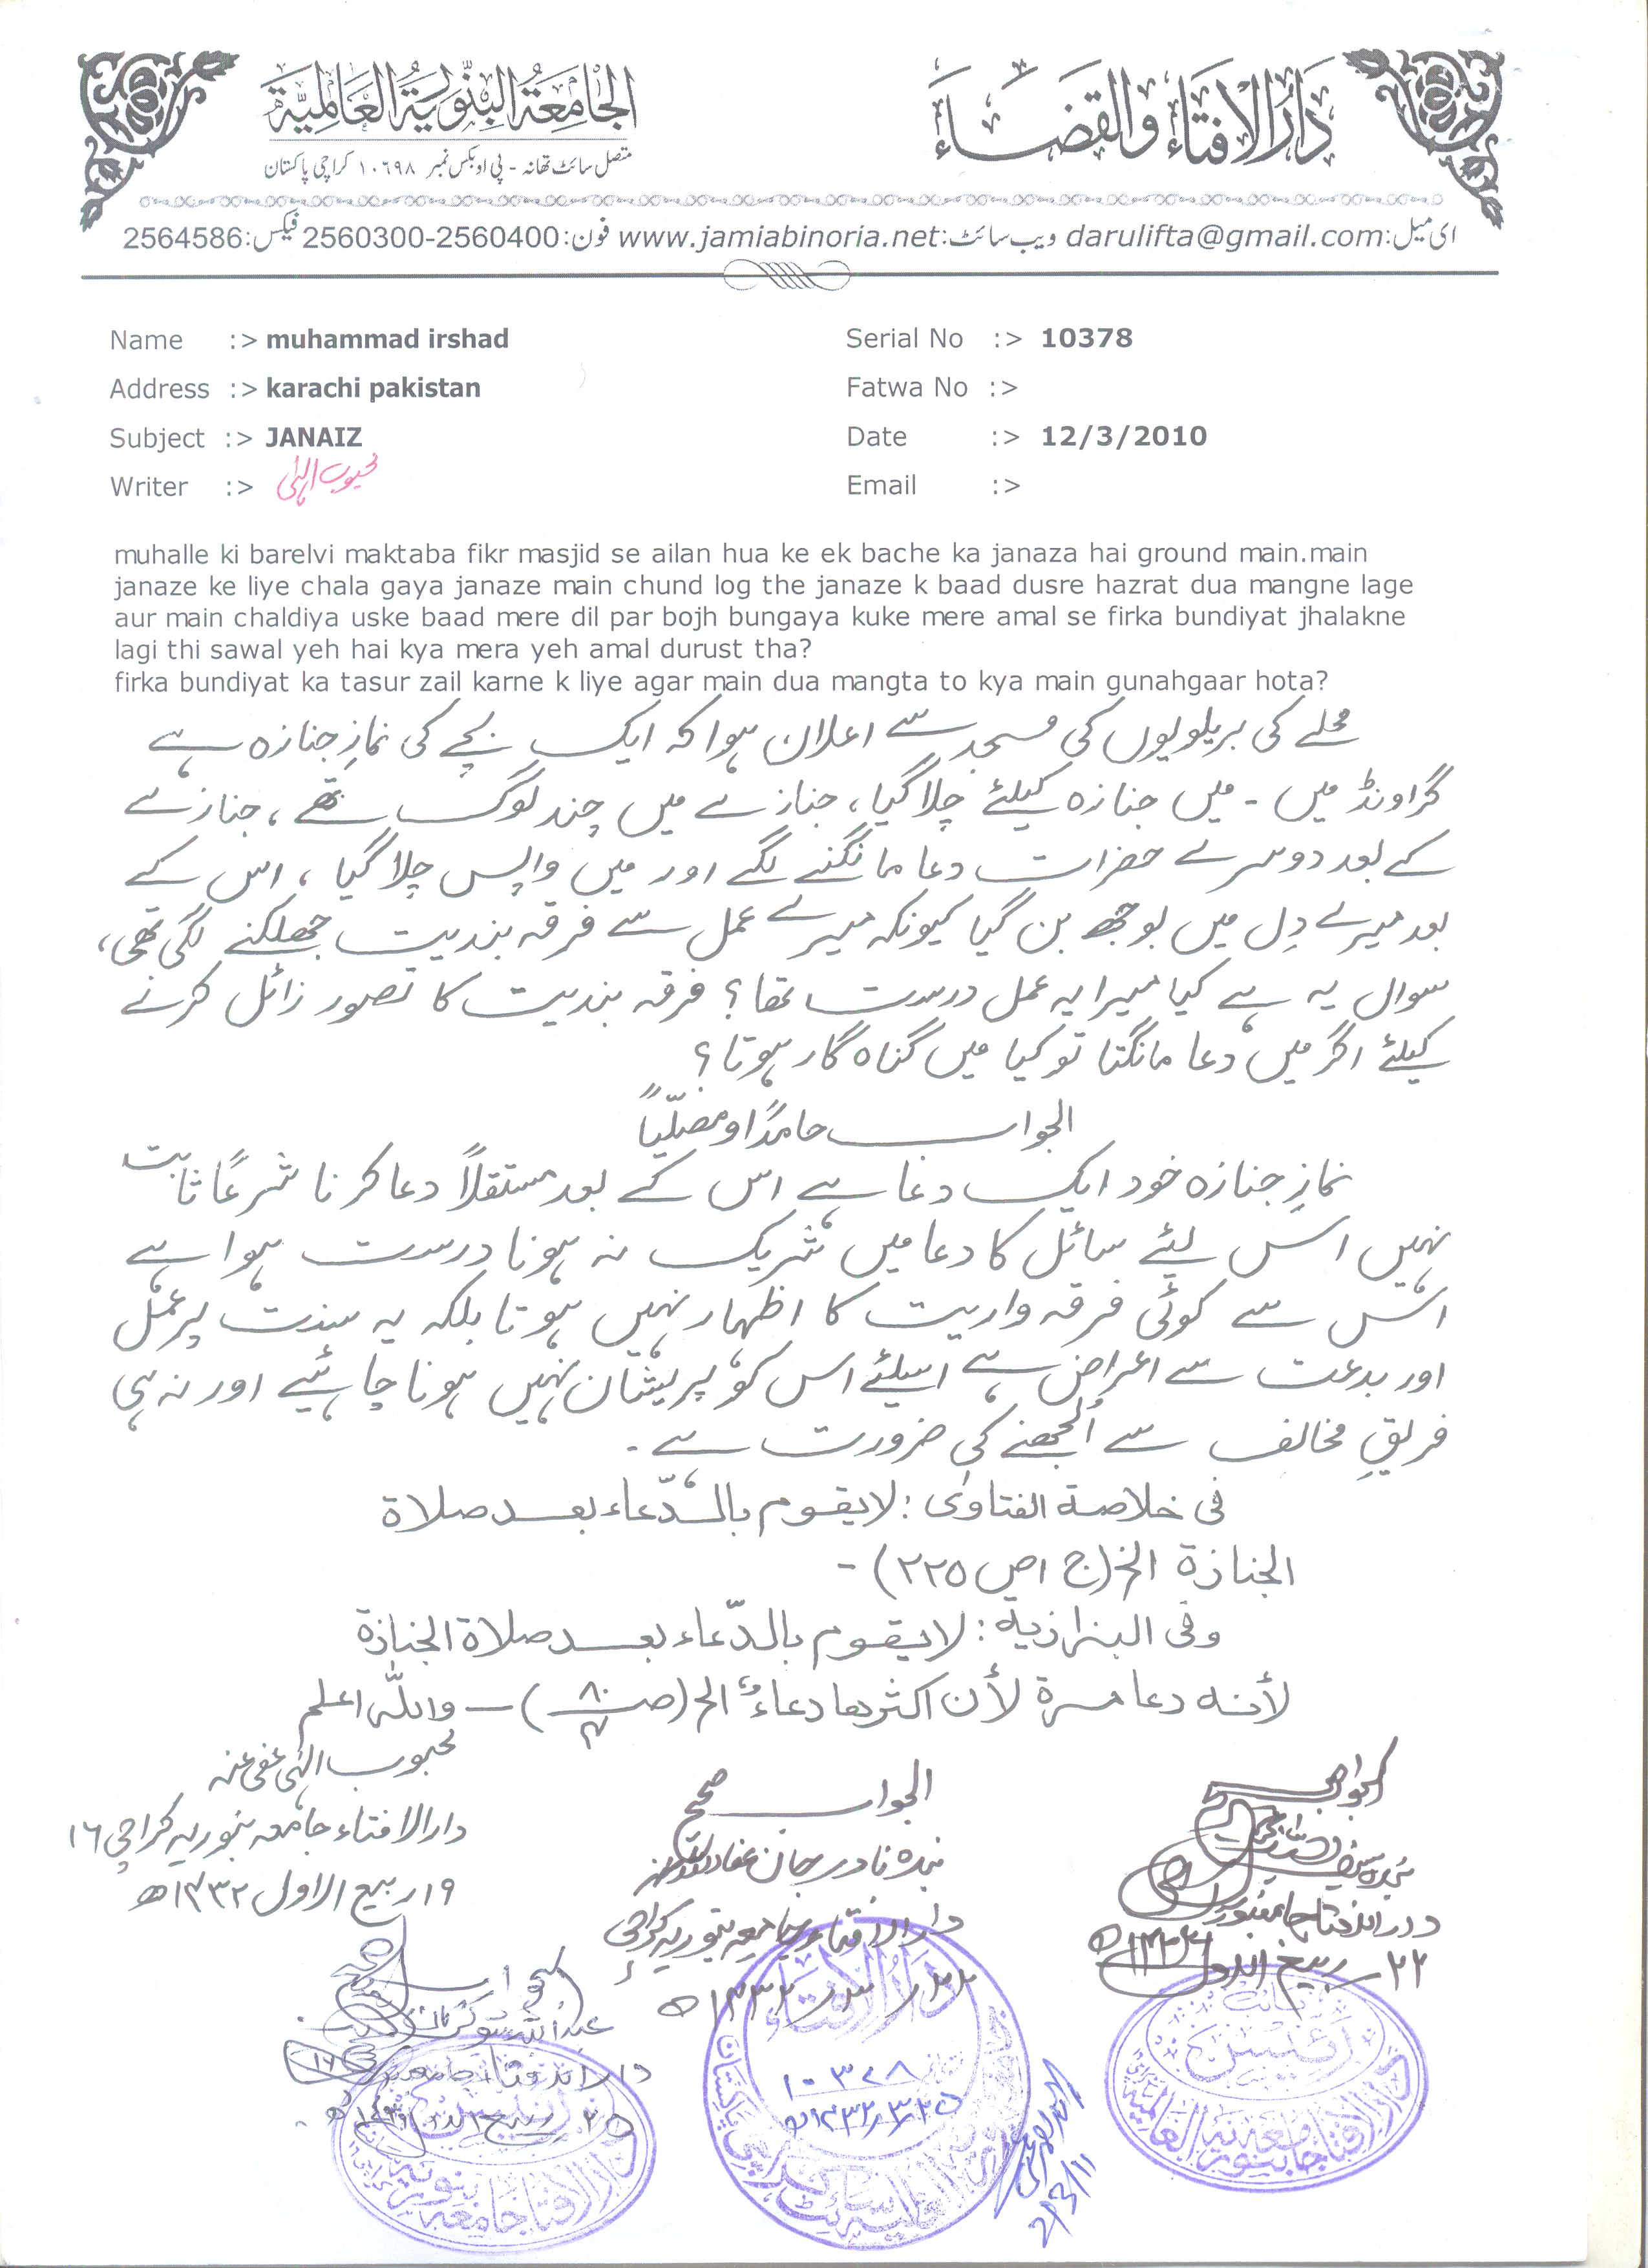 دَارُ الافتَاءِ والقضَاءِ
الجَامِعَةُ البِنّورِيَّةُ العَالَمِيَّة
متصل سائٹ تھانہ - پی او بکس نمبر ۱۰۶۹۸ کراچی پاکستان
ای میل: darulifta@gmail.com ویب سائٹ: www.jamiabinoria.net فون: 2560300-2560400 فیکس: 2564586
Name :> muhammad irshad Serial No :> 10378
Address :> karachi pakistan Fatwa No :>
Subject :> JANAIZ Date :> 12/3/2010
Writer :> محبوب الہٰی Email :>
muhalle ki barelvi maktaba fikr masjid se ailan hua ke ek bache ka janaza hai ground main.main
janaze ke liye chala gaya janaze main chund log the janaze k baad dusre hazrat dua mangne lage
aur main chaldiya uske baad mere dil par bojh bungaya kuke mere amal se firka bundiyat jhalakne
lagi thi sawal yeh hai kya mera yeh amal durust tha?
firka bundiyat ka tasur zail karne k liye agar main dua mangta to kya main gunahgaar hota?
محلے کی بریلویوں کی مسجد سے اعلان ہوا کہ ایک بچے کی نمازِ جنازہ ہے
گراونڈ میں - میں جنازہ کیلئے چلا گیا، جنازے میں چند لوگ تھے، جنازے
کے بعد دوسرے حضرات دعا مانگنے لگے اور میں واپس چلا گیا، اس کے
بعد میرے دِل میں بوجھ بن گیا کیونکہ میرے عمل سے فرقہ بندیت جھلکنے لگی تھی،
سوال یہ ہے کیا میرا یہ عمل درست تھا؟ فرقہ بندیت کا تصور زائل کرنے
کیلئے اگر میں دعا مانگتا تو کیا میں گناہ گار ہوتا؟
الجواب حامدًا و مصلّیاً
نمازِ جنازہ خود ایک دعا ہے اس کے بعد مستقلاً دعا کرنا شرعًا ثابت
نہیں اس لیٔے سائل کا دعا میں شریک نہ ہونا درست ہوا ہے
اس سے کوئی فرقہ واریت کا اظہار نہیں ہوتا بلکہ یہ سنت پر عمل
اور بدعت سے اعراض ہے اسلئے اس کو پریشان نہیں ہونا چاہئیے اور نہ ہی
فریقِ مخالف سے اُلجھنے کی ضرورت ہے -
فی خلاصة الفتاوٰی : لا یقوم بالدّعاء بعد صلاة
الجنازة الخ (ج ۱ ص ۲۲۵) -
وفی البزازیة : لا یقوم بالدّعاء بعد صلاة الجنازة
لأنه دعا مرة لأن اکثرها دعاءٌ الخ (صـ ۸۰/۴) — واللّٰہ اعلم
محبوب الہٰی عفی عنہ
دار الافتاء جامعہ بنوریہ کراچی ۱۶
۱۹ ربیع الاول ۱۴۳۲ھ
الجواب صحیح
بندہ نادر جان عفا اللہ عنہ
دار الافتاء جامعہ بنوریہ کراچی
الجواب
دار الافتاء جامعہ بنوریہ
۲۲ ربیع الاول ۱۴۳۲ھ
الجواب
دار الافتاء جامعہ بنوریہ ۱۶
۲۵ ربیع الاول
دار الافتاء
۱۰۳۷۸
۲۵/۳/۱۴۳۲ھ
2/3/11
رئیس
دار الافتاء جامعہ بنوریہ العالمیہ
رئیس
دار الافتاء جامعہ بنوریہ